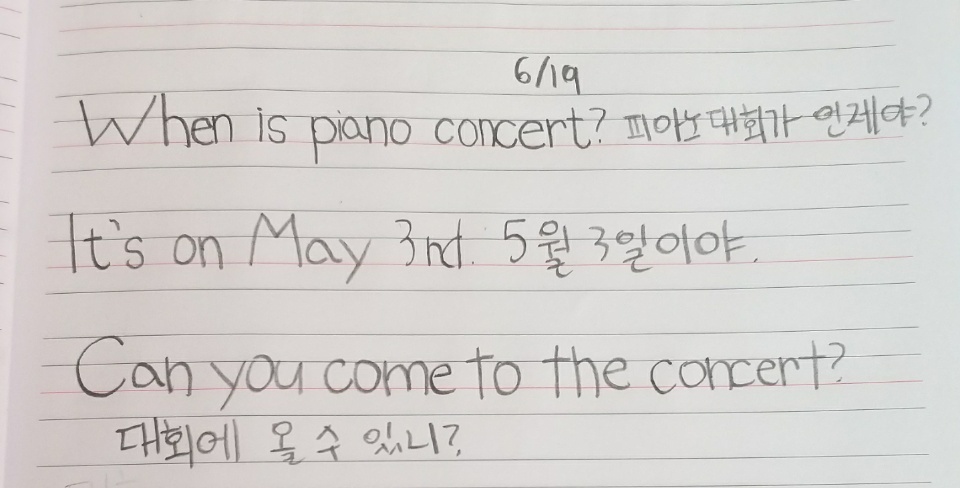 6/19
When is piano concert? 피아노대회가 언제야?
It's on May 3rd. 5월 3일이야.
Can you come to the concert?
대회에 올 수 있니?